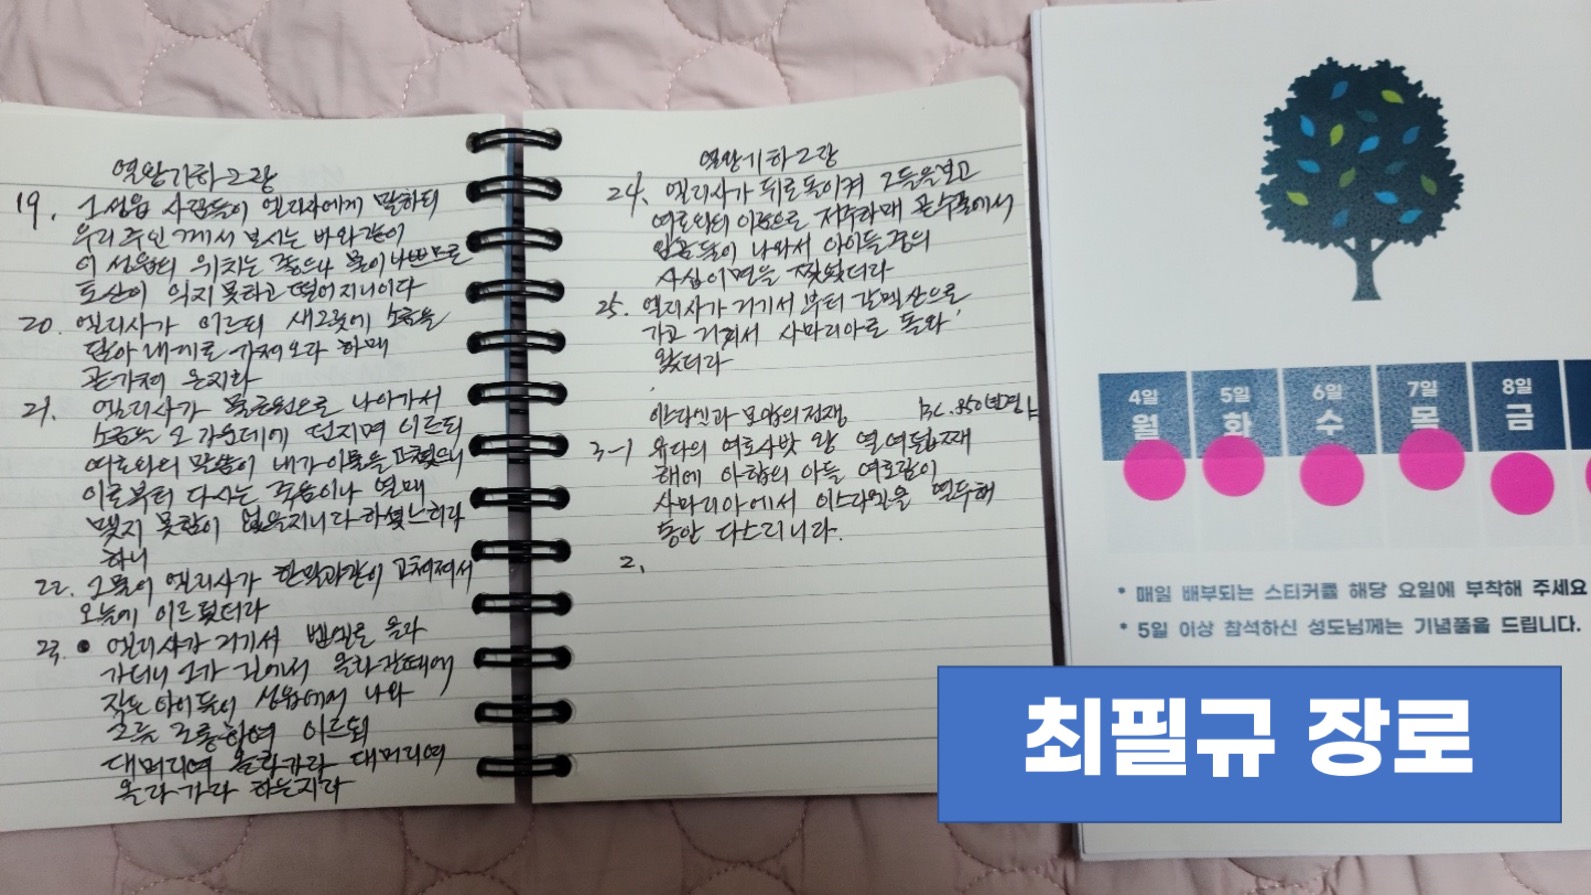 열왕기하 2장
19. 그 성읍 사람들이 엘리사에게 말하되
우리 주인께서 보시는 바와 같이
이 성읍의 위치는 좋으나 물이 나쁘므로
토산이 익지 못하고 떨어지나이다
20. 엘리사가 이르되 새 그릇에 소금을
담아 내게로 가져오라 하매
곧 가져 온지라
21. 엘리사가 물 근원으로 나아가서
소금을 그 가운데에 던지며 이르되
여호와의 말씀이 내가 이 물을 고쳤으니
이로부터 다시는 죽음이나 열매
맺지 못함이 없을지니라 하셨느니라
하니
22. 그 물이 엘리사가 한 말과 같이 고쳐져서
오늘에 이르렀더라
23. 엘리사가 거기서 벧엘로 올라
가더니 그가 길에서 올라갈 때에
작은 아이들이 성읍에서 나와
그를 조롱하여 이르되
대머리여 올라가라 대머리여
올라가라 하는지라
열왕기하 2장
24. 엘리사가 뒤로 돌이켜 그들을 보고
여호와의 이름으로 저주하매 곧 수풀에서
암곰 둘이 나와서 아이들 중의
사십이명을 찢었더라
25. 엘리사가 거기서부터 갈멜산으로
가고 거기서 사마리아로 돌아
왔더라
이스라엘과 모압의 전쟁 BC. 850년경
3-1 유다의 여호사밧 왕 열여덟째
해에 아합의 아들 여호람이
사마리아에서 이스라엘을 열두해
동안 다스리니라.
2.
4일 5일 6일 7일 8일
월 화 수 목 금
* 매일 배부되는 스티커를 해당 요일에 부착해 주세요
* 5일 이상 참석하신 성도님께는 기념품을 드립니다.
최필규 장로